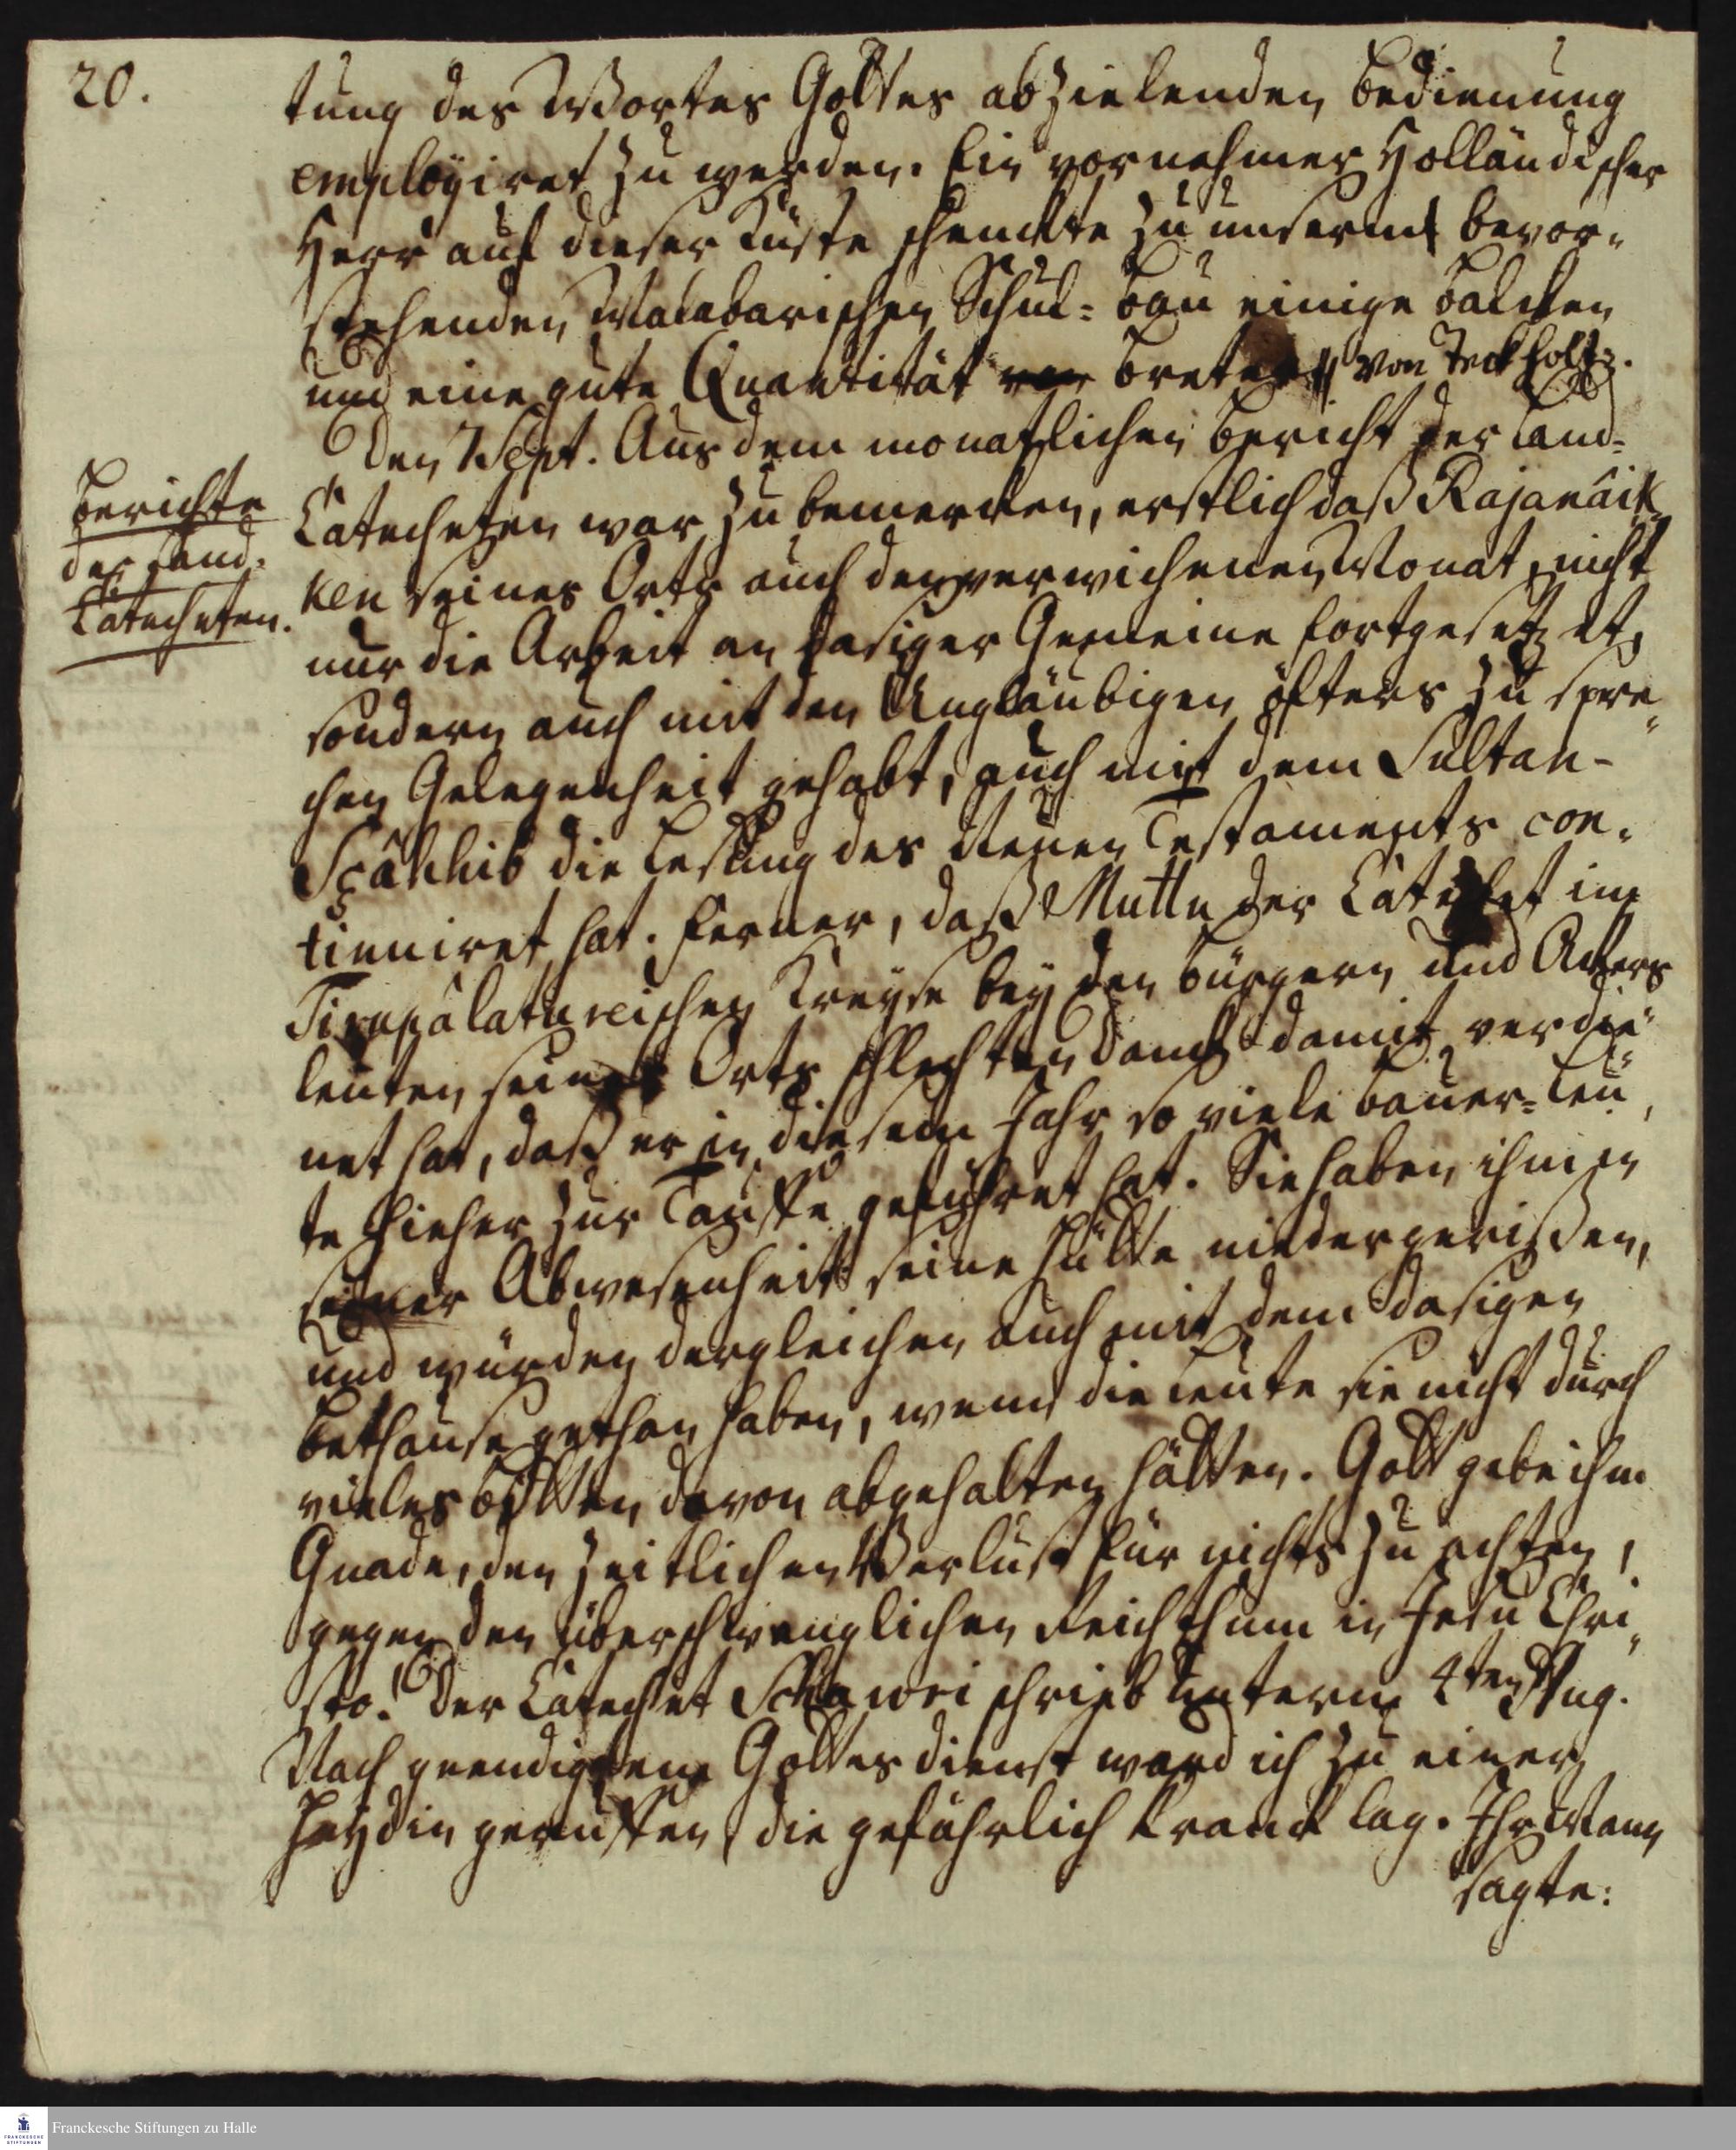 20.
tung des Wortes Gottes abzielenden Bedienung
employiret zu werden. Ein vornehmer Holländischer
Herr auf dieser Küste schenckte zu unserm bevor-
stehenden Malabarischen Schul-Bau einige Balcken
und eine gute Quantität Breter von Teckholtz.
Den 7 Sept. Aus dem monathlichen Bericht der Land-
Berichte
der Land-
Catecheten.
Catecheten war zu bemercken, erstlich daß Rajanâik
ken seines Orts auch den verwichenen Monat nicht
nur die Arbeit an dasiger Gemeine fortgesetzet,
sondern auch mit den Ungläubigen öfters zu spre-
chen Gelegenheit gehabt, auch mit dem Sultan-
Scâhhib die Lesung des Neuen Testaments con-
tinuiret hat. Ferner, daß Muttu der Catechet im
Tirupâlatureischen Kreyse bey den Bürgern und Ackers
leuten seines Orts schlechten Danck damit verdie-
net hat, daß er in diesem Jahr so viele Bauer-Leu-
te hieher zur Tauffe geführet hat. Sie haben ihm in
seiner Abwesenheit seine Hütte niedergerissen,
und würden dergleichen auch mit dem dasigen
Bethause gethan haben, wenn die Leute sie nicht durch
vieles Bitten davon abgehalten hätten. Gott gebe ihm
Gnade, den zeitlichen Verlust für nichts zu achten,
gegen den überschwenglichen Reichthum in Jesu Chri-
sto! Der Catechet schrieb unterm 4ten Aug.
Nach geendigtem Gottesdienst ward ich zu einer
Heydin geruffen, die gefährlich kranck lag. Ihr Mann
sagte:
Franckesche Stiftungen zu Halle